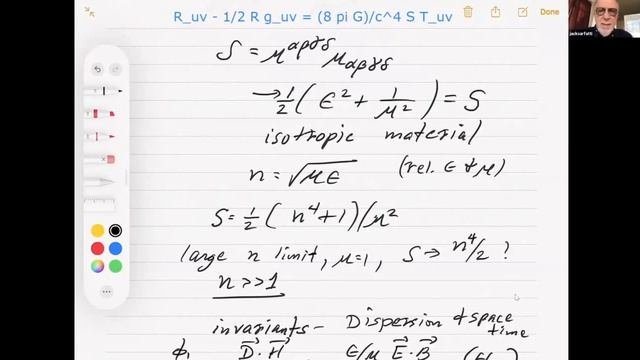 R_uv - 1/2 R g_uv = (8 pi G)/c^4 S T_uv
Done
jacksarfatti
S = μ^αβγδ μ_αβγδ
→ 1/2 ( ε² + 1/μ² ) = S
isotropic material
n = √με (rel. ε & μ)
S = 1/2 ( n⁴ + 1 ) / μ²
large n limit, μ=1, S → n⁴/2 ?
n >> 1
invariants - Dispersion & space
time
D⃗ · H⃗ ε/μ E⃗ · B⃗